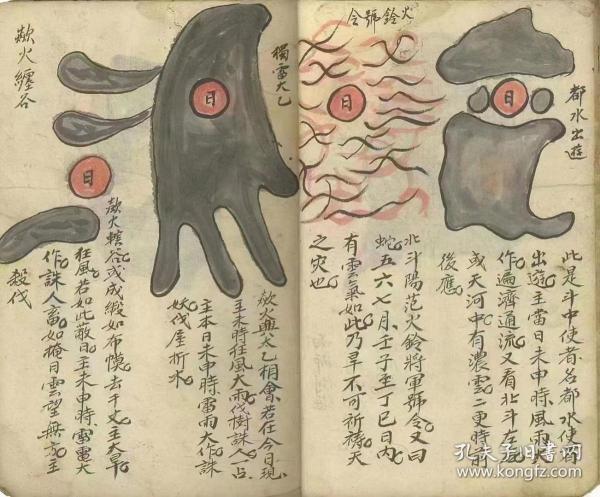 都水出遊
日
此是斗中使者名都水使者
出遊主當日未申時風雨大
作遍濟通流又看北斗左右
或天河中有濃雲二更時前
後應
火鈴號令
日
北斗陽范火鈴將軍號令又曰
蛇五六七月壬子至丁巳日内
有雲氣如此乃旱不可祈禱天
之灾也
獨雷大乙
日
欻火與大乙相會若在今日現
主未時狂風大雨伐樹誅人一占
主本日未申時雷雨大作誅
妖伐屋折木
欻火纏谷
日
欻火轄谷或成緞如布幔去千丈主大旱
狂風若如此蔽日主未申時雷電大
作誅人畜如掩日雲望無方主
殺伐
孔夫子旧书网
www.kongfz.com